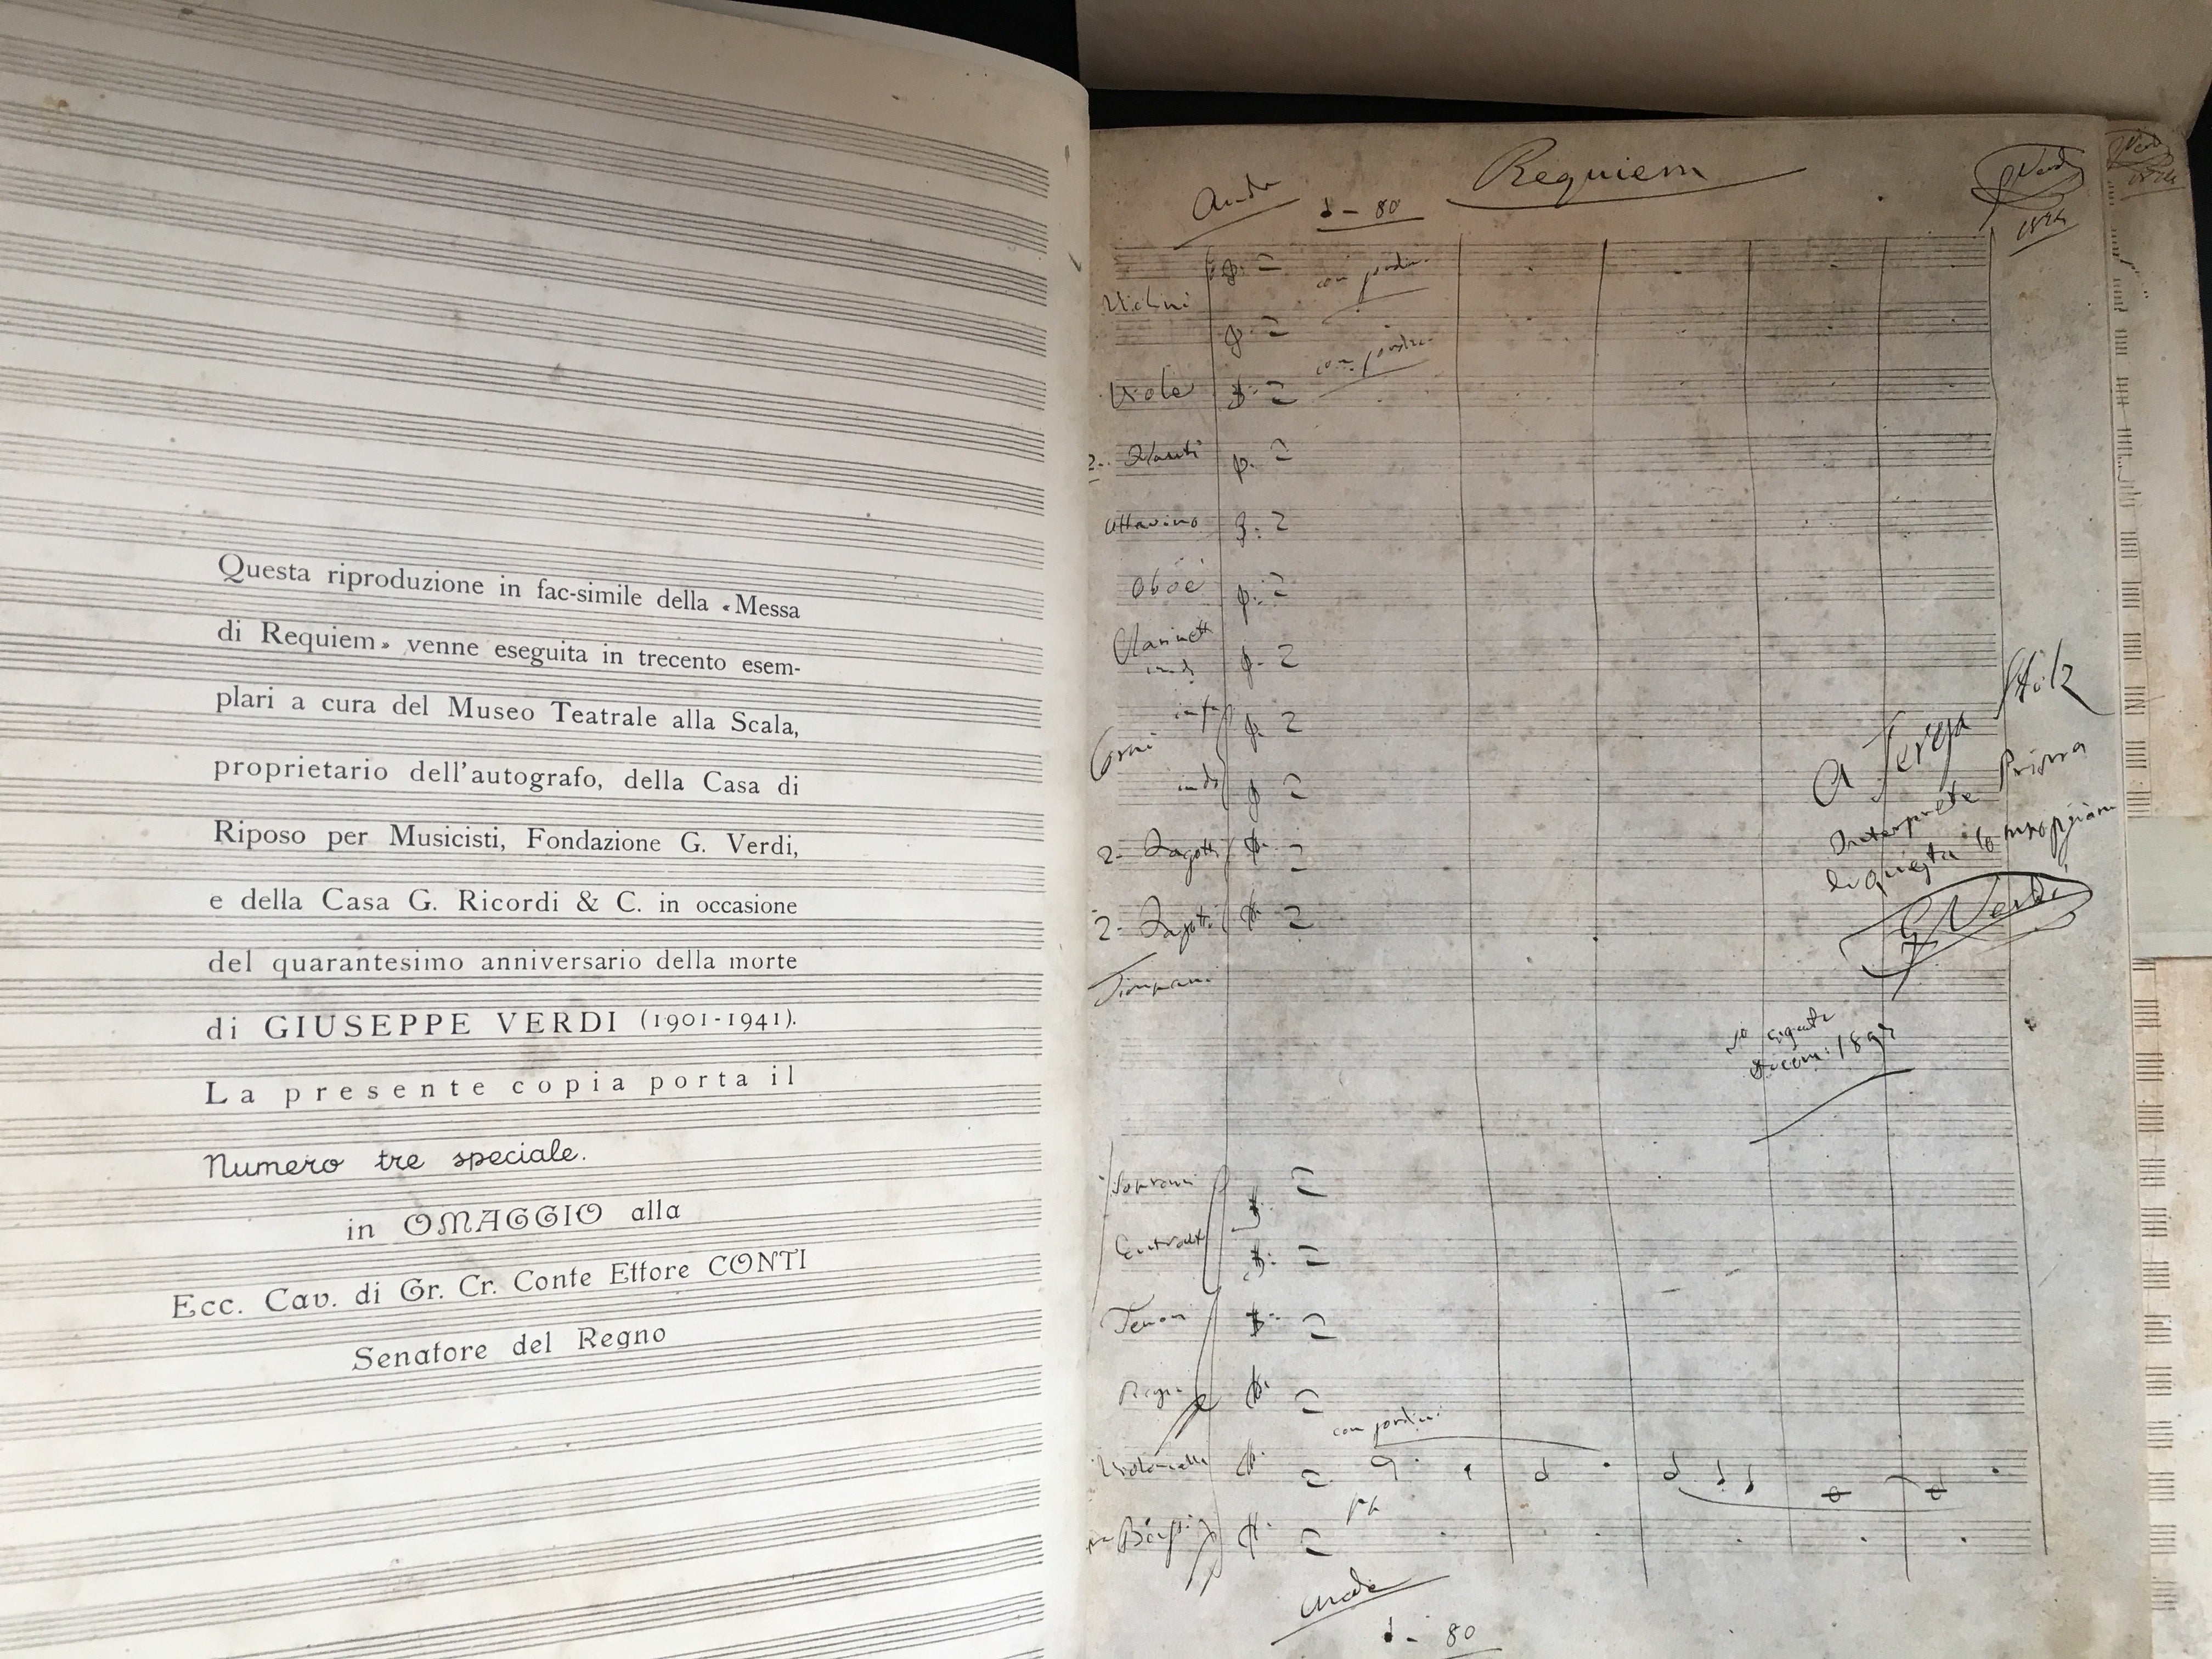 Questa riproduzione in fac-simile della «Messa
di Requiem» venne eseguita in trecento esem-
plari a cura del Museo Teatrale alla Scala,
proprietario dell'autografo, della Casa di
Riposo per Musicisti, Fondazione G. Verdi,
e della Casa G. Ricordi & C. in occasione
del quarantesimo anniversario della morte
di GIUSEPPE VERDI (1901-1941).
La presente copia porta il
Numero tre speciale.
in OMAGGIO alla
Ecc. Cav. di Gr. Cr. Conte Ettore CONTI
Senatore del Regno
Requiem
GVerdi
1874
Ande
= 80
Violini
con sordin.
con sordin.
Viole
2. Flauti
Ottavino
Oboe
Clarinetti
in do
Corni
in fa
in do
2- Fagotti
2- Fagotti
Timpani
A Teresa Stolz
Interprete Prima
di questa Composizione
G Verdi
Soprani
Contralti
Tenori
Bassi
con sordini
Violoncelli
pp
Bassi
Ande
= 80